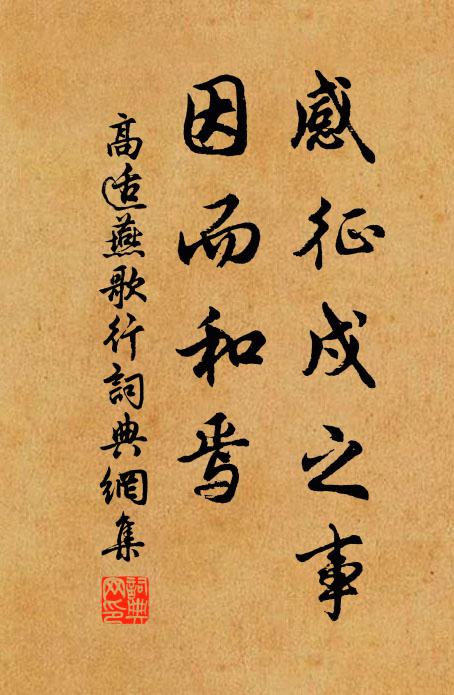 感征戍之事
因而和焉
高适燕歌行詞典網集
詞典網印